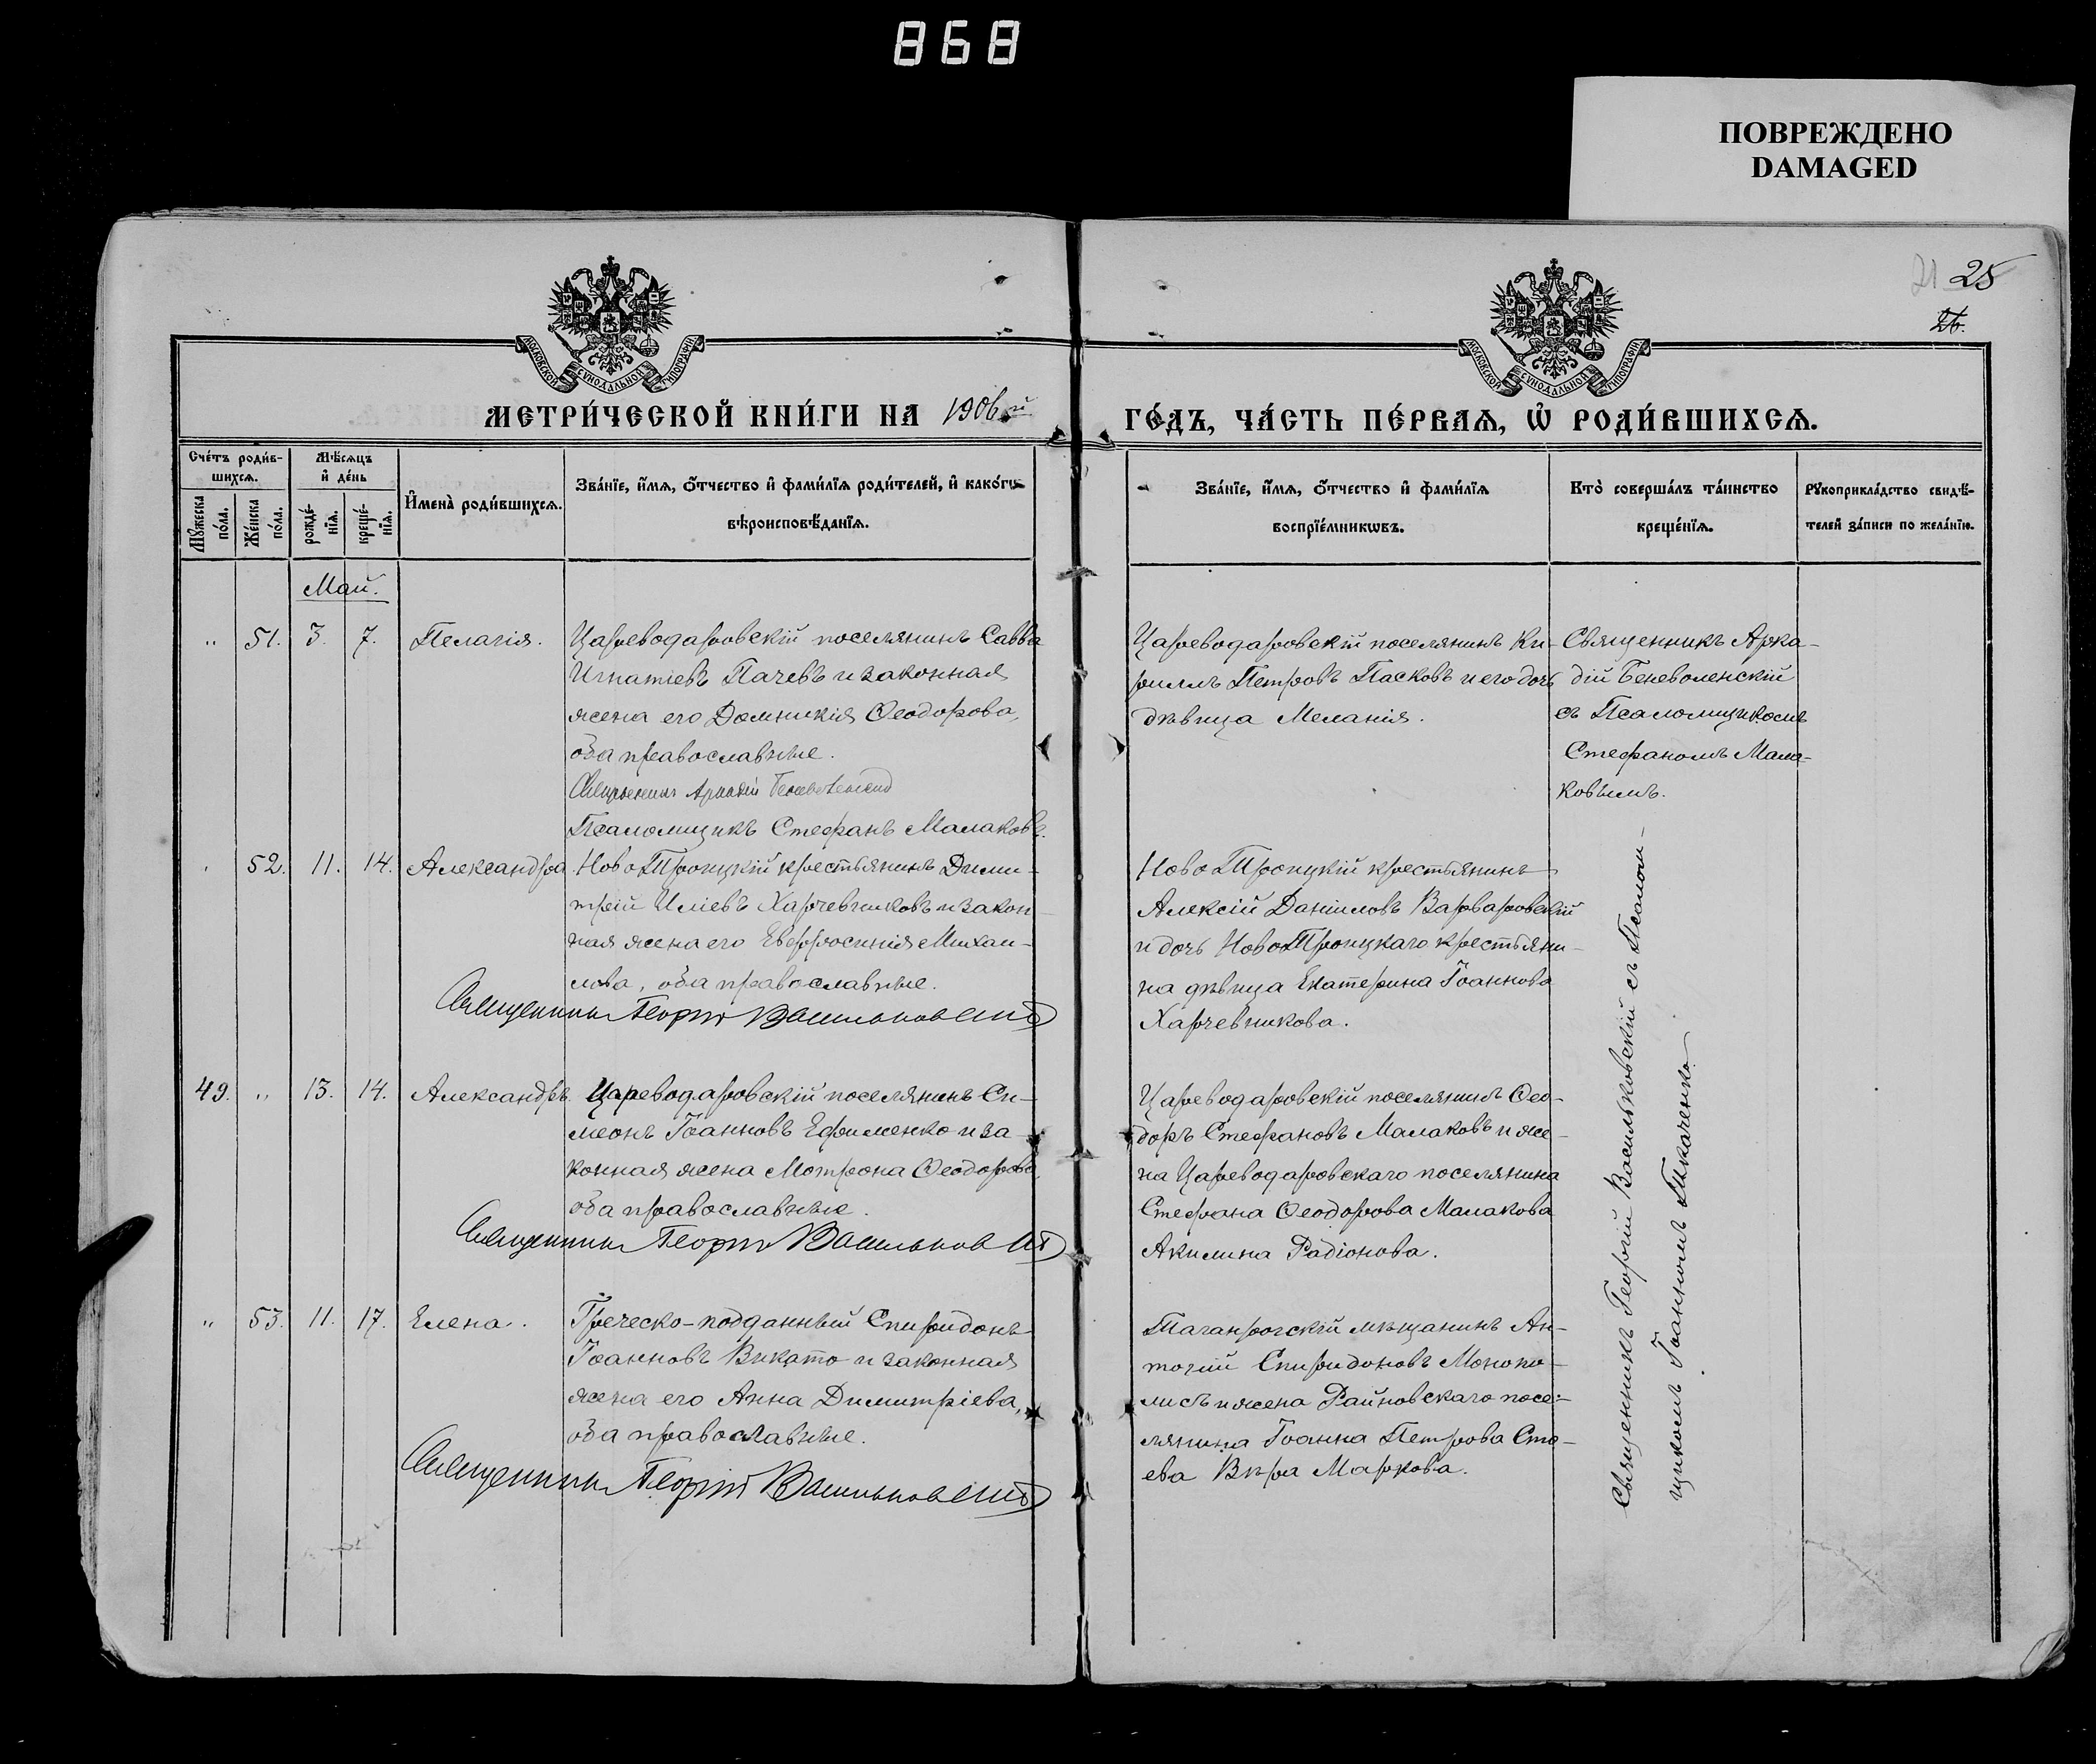 868
ПОВРЕЖДЕНО
DAMAGED
21 25
МОСКОВСКОЙ СѴНОДАЛЬНОЙ ТИПОГРАФІИ
МОСКОВСКОЙ СѴНОДАЛЬНОЙ ТИПОГРАФІИ
МЕТРИ́ЧЕСКОЙ КНИ́ГИ НА 1906й
ГО́ДЪ, ЧА́СТЬ ПЕ́РВАѦ, Ѿ РОДИ́ВШИХСѦ.
Сче́тъ роди́в-
шихсѧ.
Мꙋ́жеска по́ла.
Же́нска по́ла.
Мѣ́сѧцъ
и҆ де́нь
рожде́-
нїѧ.
креще́-
нїѧ.
И҆мена̀ роди́вшихсѧ.
Зва́нїе, и҆́мѧ, ѻ҆́тчество и҆ фами́лїѧ роди́телей, и҆ како́гѡ
вѣроисповѣ́данїѧ.
Зва́нїе, и҆́мѧ, ѻ҆́тчество и҆ фами́лїѧ
воспрїе́мникѡвъ.
Кто̀ соверша́лъ та́инство
креще́нїѧ.
Рꙋкоприкла́дство свидѣ́-
телей за́писи по жела́нїю.
Май.
„ 51. 3. 7. Пелагія.
Цареводаровскій поселянинъ Савва
Игнатіевъ Пачевъ и законная
жена его Домникія Ѳеодорова,
оба православные.
Священникъ Аркадій Беневоленскій
Псаломщикъ Стефанъ Малаковъ.
Цареводаровскій поселянинъ Ки-
риллъ Петровъ Пасковъ и его дочь
дѣвица Меланія.
Священникъ Арка-
дій Беневоленскій
съ Псаломщикомъ
Стефаномъ Мала-
ковымъ.
52. 11. 14. Александра
НовоТроицкій крестьянинъ Дими-
трій Иліевъ Харчевниковъ и закон-
ная жена его Евфросинія Михаи-
лова, оба православные.
Священникъ Георгій Васильковскій
НовоТроицкій крестьянинъ
Алексій Даніиловъ Варваровскій
и дочь НовоТроицкаго крестьяни-
на дѣвица Екатерина Іоаннова
Харчевникова.
49. „ 13. 14. Александръ.
Цареводаровскій поселянинъ Си-
меонъ Іоанновъ Ефименко и за-
конная жена Мотрона Ѳеодорова,
оба православные.
Священникъ Георгій Васильковскій
Цареводаровскій поселянинъ Ѳео-
доръ Стефановъ Малаковъ и же-
на Цареводаровскаго поселянина
Стефана Ѳеодорова Малакова
Акилина Радіонова.
„ 53. 11. 17. Елена.
Греческо-подданный Спиридонъ
Іоанновъ Викато и законная
жена его Анна Димитріева,
оба православные.
Священникъ Георгій Васильковскій
Таганрогскій мѣщанинъ Ан-
тоній Спиридоновъ Монопо-
лисъ и жена Райновскаго посе-
лянина Іоанна Петрова Сто-
ева Вѣра Маркова.
Священникъ Георгій Васильковскій съ Псалом-
щикомъ Іоанномъ Ткаченко.